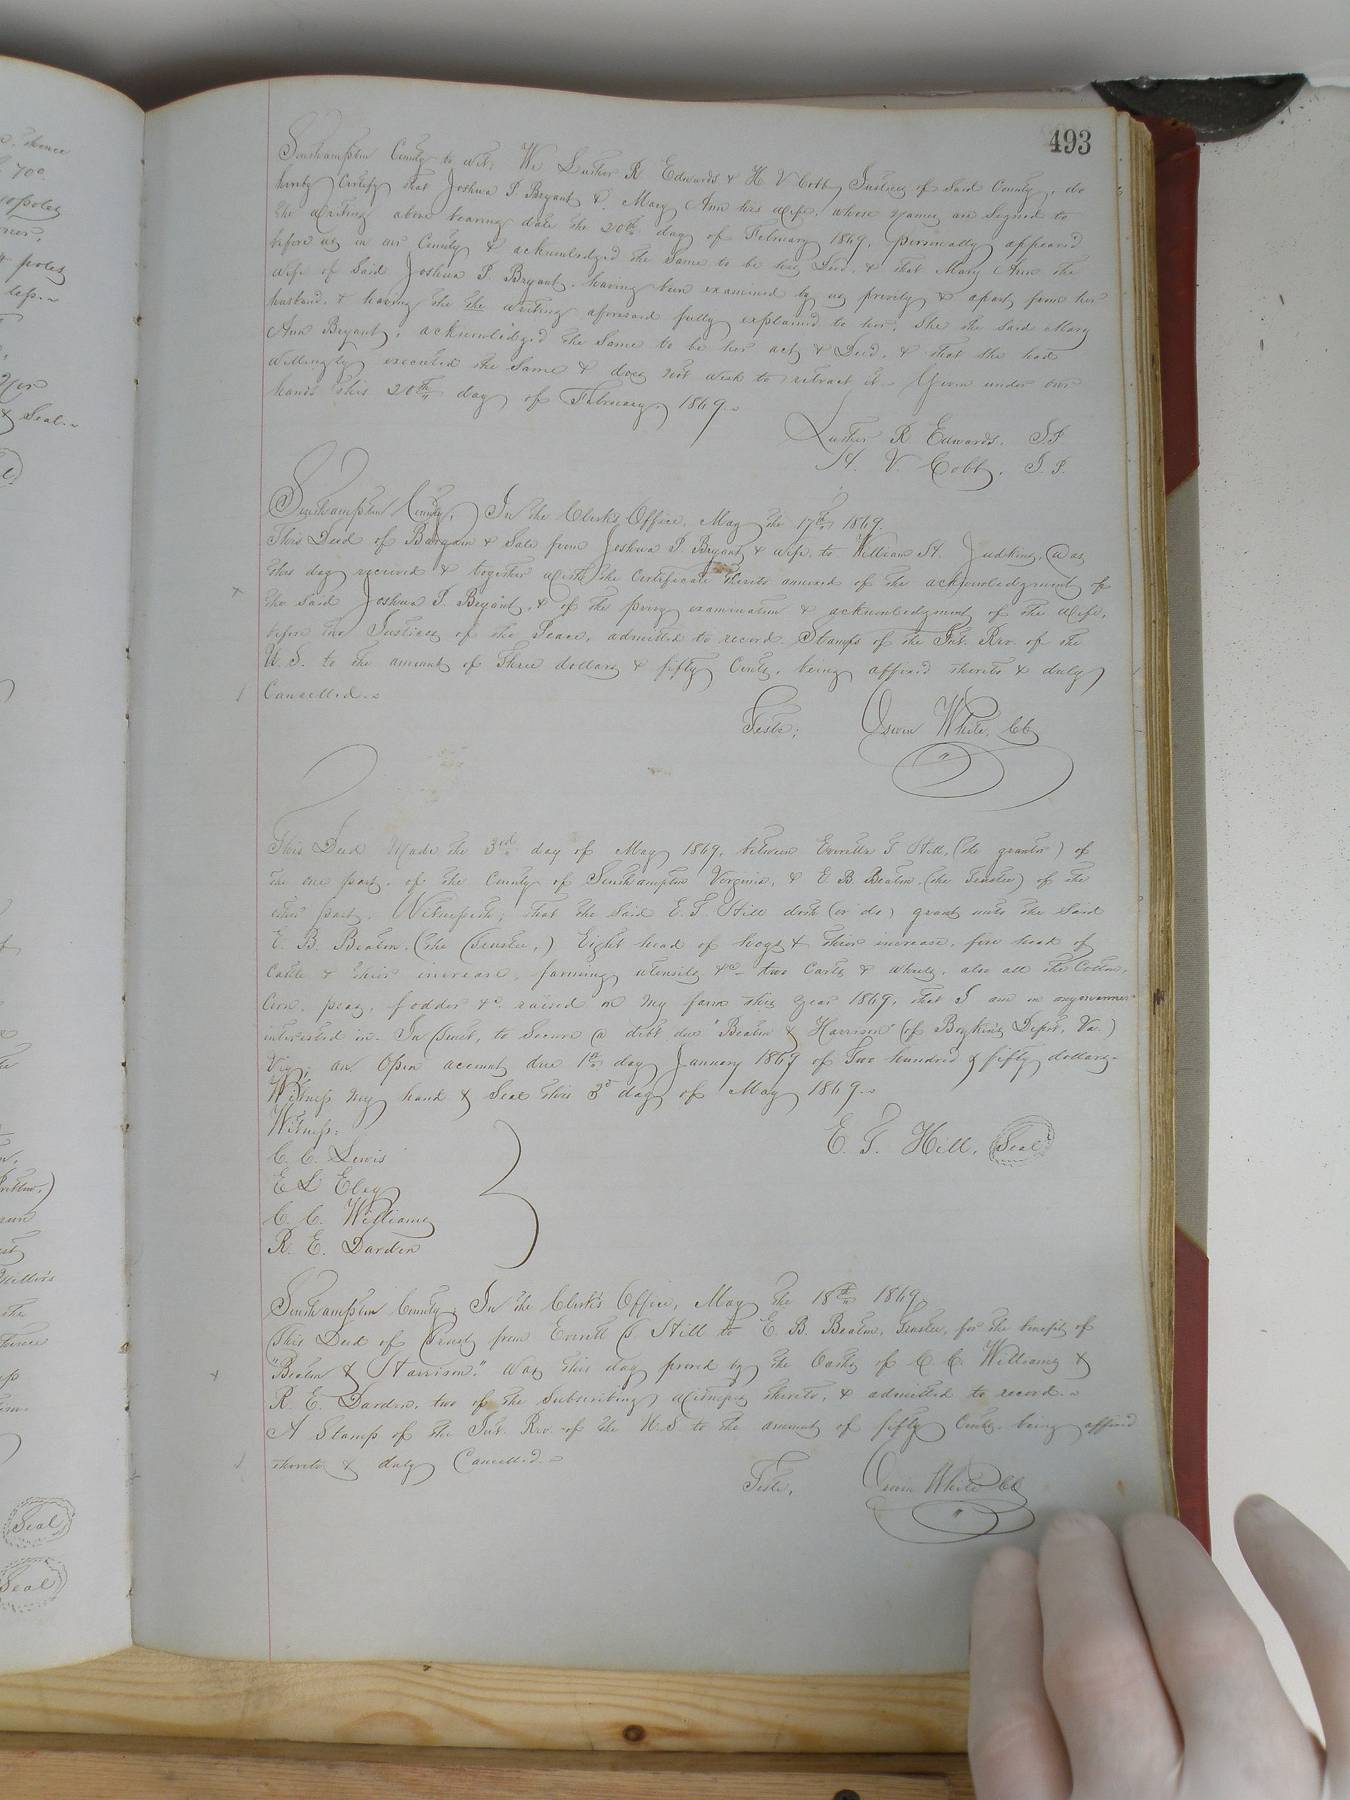 493
Southampton County to wit; We Luther R Edwards & H V Cobb Justices of Said County, do
hereby Certify that Joshua P Bryant & Mary Ann his Wife, whose names are Signed to
the Writing above bearing date the 20th day of February 1869, personally appeared
before us in our County & acknowledged the Same to be their Deed, & that Mary Ann the
Wife of Said Joshua P. Bryant, having been examined by us privily & apart from her
husband, & having the the writing aforesaid fully explained to her, She the Said Mary
Ann Bryant, acknowledged the Same to be her act & Deed, & that She had
Willingly executed the Same & does not wish to retract it. Given under our
hands this 20th day of February, 1869.
Luther R Edwards. JP
H. V. Cobb, J.P.
Southampton County, In the Clerk's Office, May the 17th 1869.
This Deed of Bargain & Sale from Joshua P Bryant & wife to William H. Judkins, Was
this day received & together with the Certificate thereto annexed of the acknowledgment of
the Said Joshua P. Bryant, & of the privy examination & acknowledgment of the Wife,
before two Justices of the Peace, admitted to record. Stamps of the Int. Rev. of the
U. S. to the amount of Three dollars & fifty Cents, being affixed thereto & duly
Cancelled.
Teste; White, CC
This Deed Made the 3rd day of May 1869, between Everette T Hill, (the grantor) of
the one part, of the County of Southampton Virginia, & E. B. Beaton, (the Trustee) of the
other part, Witnesseth, that the Said E. T. Hill doth (or do) grant unto the Said
E. B. Beaton, (the Trustee,) Eight head of hogs & their increase, five head of
Cattle & their increase, farming utensils &c two Carts & wheels, also all the Cotton,
Corn, peas, fodder &c. raised on My farm this year 1869, that I am in anymanner
interested in. In trust, to Secure a debt due "Beaton & Harrison" (of Boykins Depot, Va.)
Viz; an Open account due 1st day January 1869 of Two hundred & fifty dollars
Witness My hand & Seal this 3d day of May 1869.
Witness: E. T. Hill, Seal
C. C. Lewis
E L Eley
C. C. Williams
R. E. Darden
Southampton County, In the Clerk's Office, May the 18th 1869
This Deed of Trust from Everett T Hill to E. B. Beaton, Trustee, for the benefit of
"Beaton & Harrison." was this day proved by the Oaths of C. C. Williams &
R. E. Darden, two of the Subscribing Witnesses thereto, & admitted to record.
A Stamp of the Int. Rev. of the U. S to the amount of fifty Cents. being affixed
thereto & duly Cancelled.
Teste, White CC
Seal
Seal